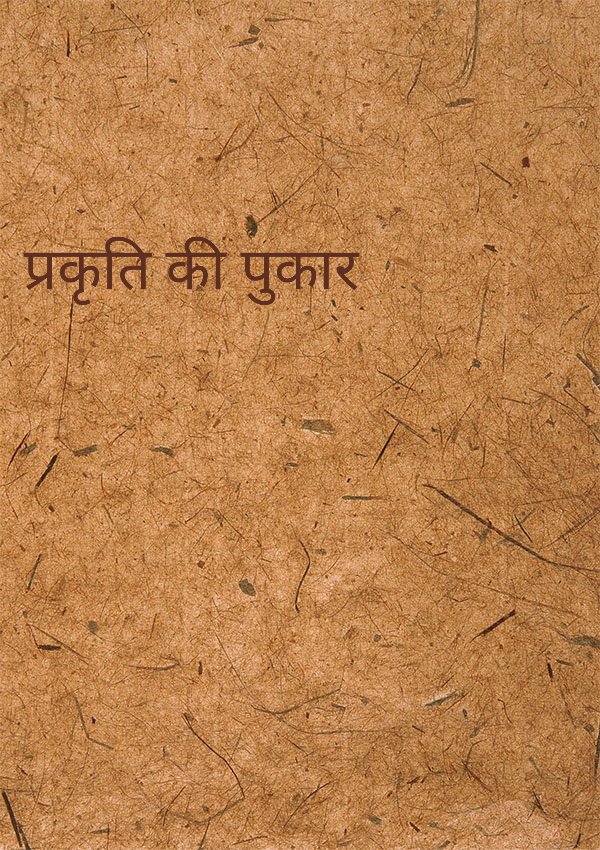 प्रकृति की पुकार